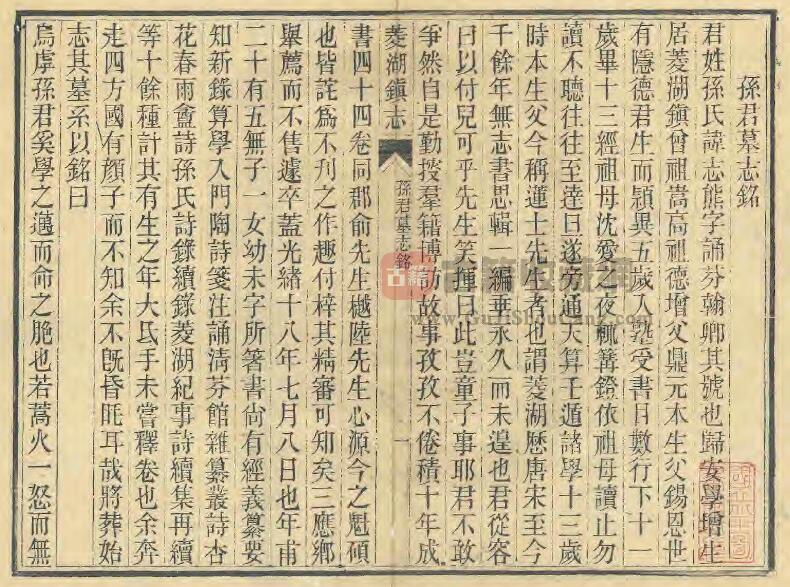 孫君墓志銘
君姓孫氏諱志熊字誦芬翰卿其號也歸安學增生
居菱湖鎮曾祖嵩高祖德增父鼎元本生父錫恩世
有隱德君生而穎異五歲入塾受書日數行下十一
歲畢十三經祖母沈愛之夜輒篝鐙依祖母讀止勿
讀不聽往往至達旦遂旁通天算壬遁諸學十三歲
時本生父今稱蓮士先生者也謂菱湖歷唐宋至今
千餘年無志書思輯一編垂永久而未遑也君從容
曰以付兒可乎先生笑揮曰此豈童子事耶君不敢
爭然自是勤搜羣籍博訪故事孜孜不倦積十年成
菱湖鎮志
孫君墓志銘
一
書四十四卷同郡俞先生樾陸先生心源今之魁碩
也皆詫為不刊之作趣付梓其精審可知矣三應鄉
舉薦而不售遽卒蓋光緒十八年七月八日也年甫
二十有五無子一女幼未字所箸書尙有經義纂要
知新錄算學入門陶詩箋注誦淸芬館雜纂叢詩杏
花春雨盦詩孫氏詩錄續錄菱湖紀事詩續集再續
等十餘種計其有生之年大氐手未嘗釋卷也余奔
走四方國有顏子而不知余不旣昏眊耳哉將葬始
志其墓系以銘曰
烏虖孫君奚學之邁而命之脆也若蒿火一怒而無
古籍
www.GuJiShouCang.com